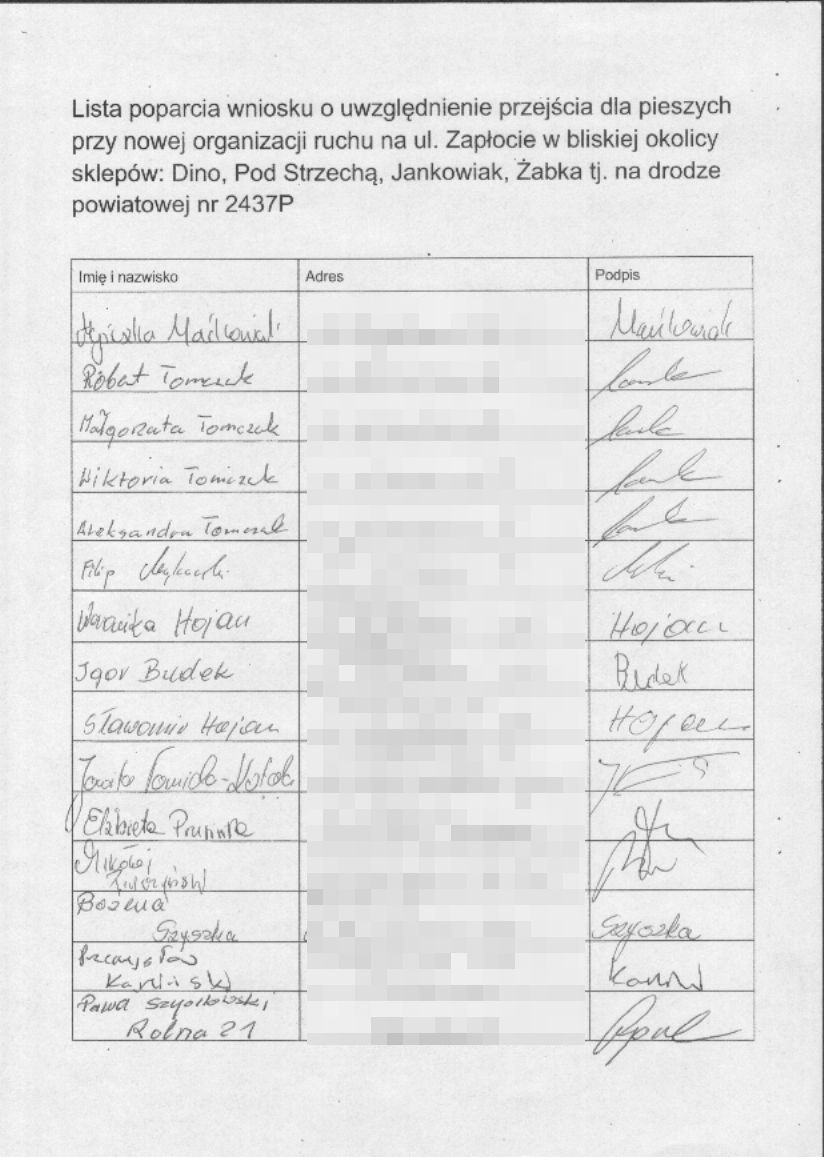 Lista poparcia wniosku o uwzględnienie przejścia dla pieszych
przy nowej organizacji ruchu na ul. Zapłocie w bliskiej okolicy
sklepów: Dino, Pod Strzechą, Jankowiak, Żabka tj. na drodze
powiatowej nr 2437P
Imię i nazwisko Adres Podpis
Agnieszka Maćkowiak Maćkowiak
Robert Tomczak
Małgorzata Tomczak
Wiktoria Tomczak
Aleksandra Tomczak
Filip
Weronika Hojan Hojan
Igor Budek Budek
Sławomir Hojan Hojan
Elżbieta
Mikołaj
Bożena
Szyszka Szyszka
Przemysław
Kamiński
Paweł
Rolna 21